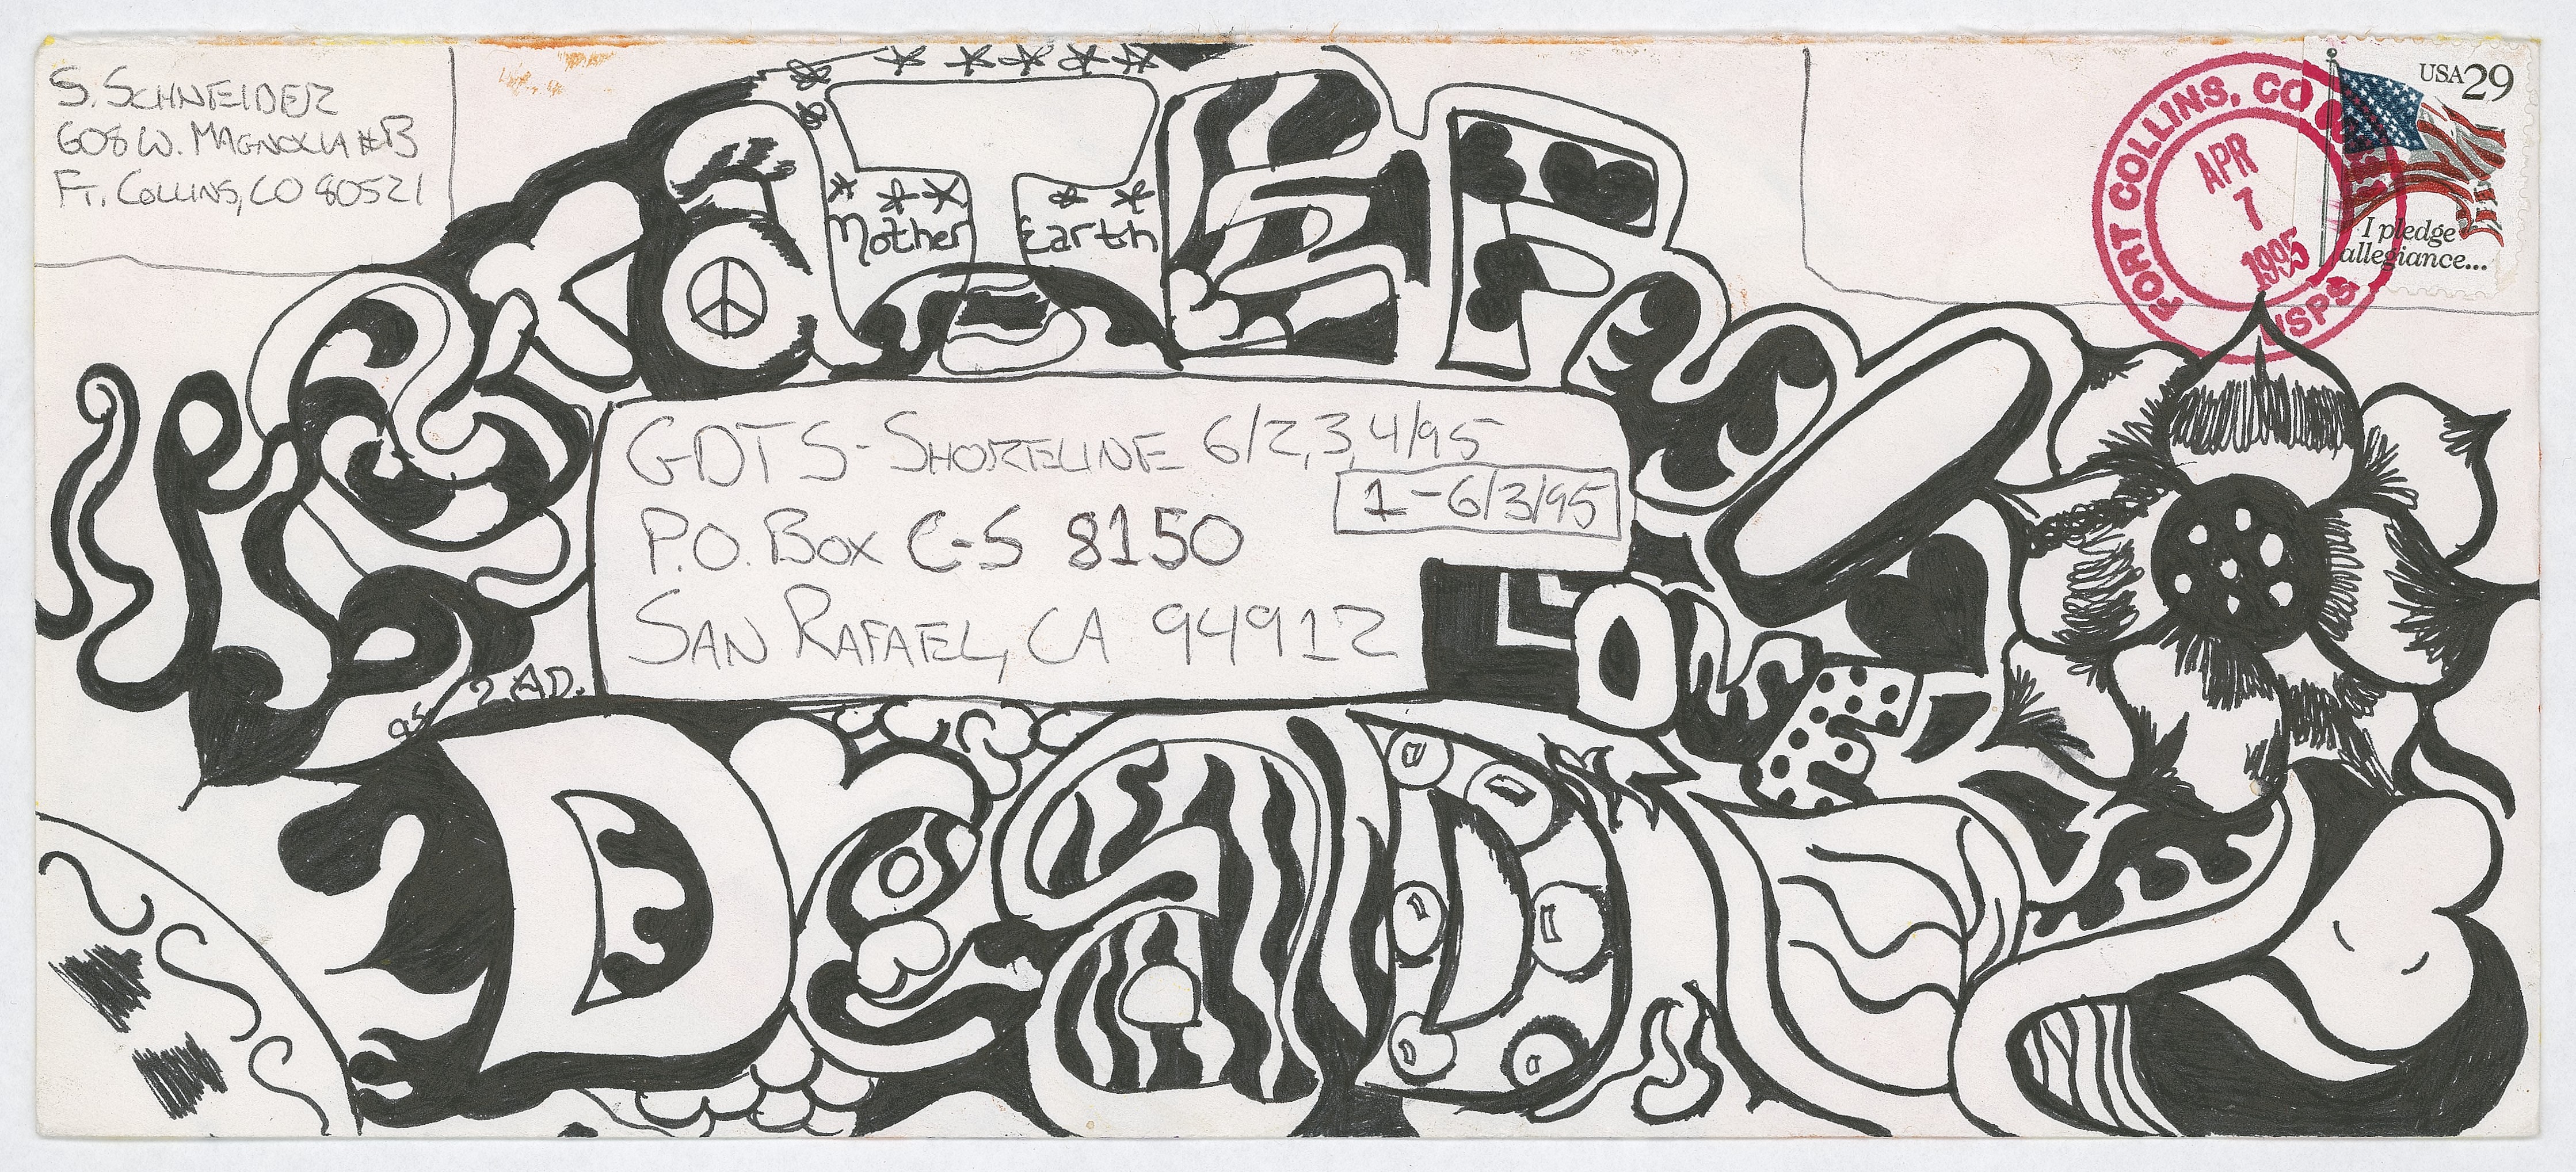 S. SCHNEIDER
608 W. MAGNOLIA #B
FT. COLLINS, CO 80521
FORT COLLINS, CO
APR
7
1995
USPS
USA 29
I pledge
allegiance...
GrateFul
Mother Earth
GDTS-SHORELINE 6/2,3,4/95
1-6/3/95
P.O. BOX C-S 8150
SAN RAFAEL, CA 94912
LOVE
95 AD.
DeAD